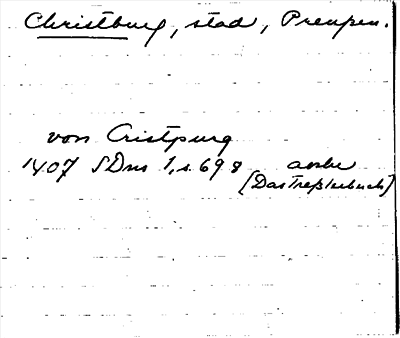 Christburg, stad, Preußen.
von Cristpurg
1407 SDns 1, s. 698 avskr
[Das Treßlerbuch]